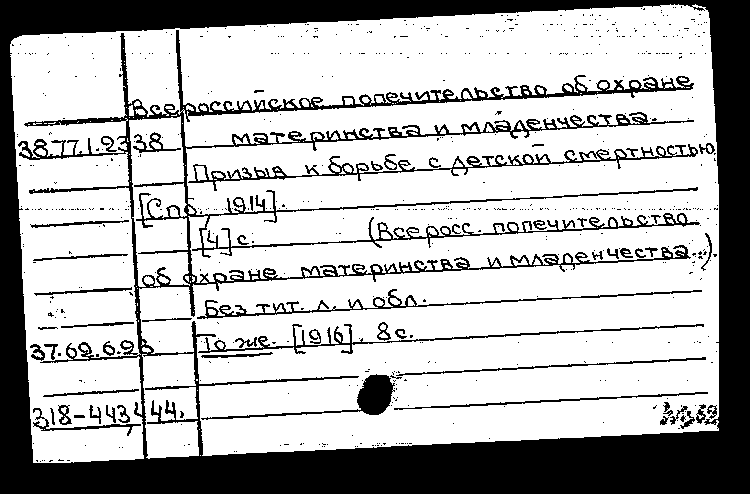 Всероссийское попечительство об охране
38.77.1.2338 материнства и младенчества.
Призыв к борьбе с детской смертностью
[Спб., 1914].
[4] с. (Всеросс. попечительство
об охране материнства и младенчества..).
Без тит. л. и обл.
37.69.6.93 То же. [1916]. 8с.
318-443,444.